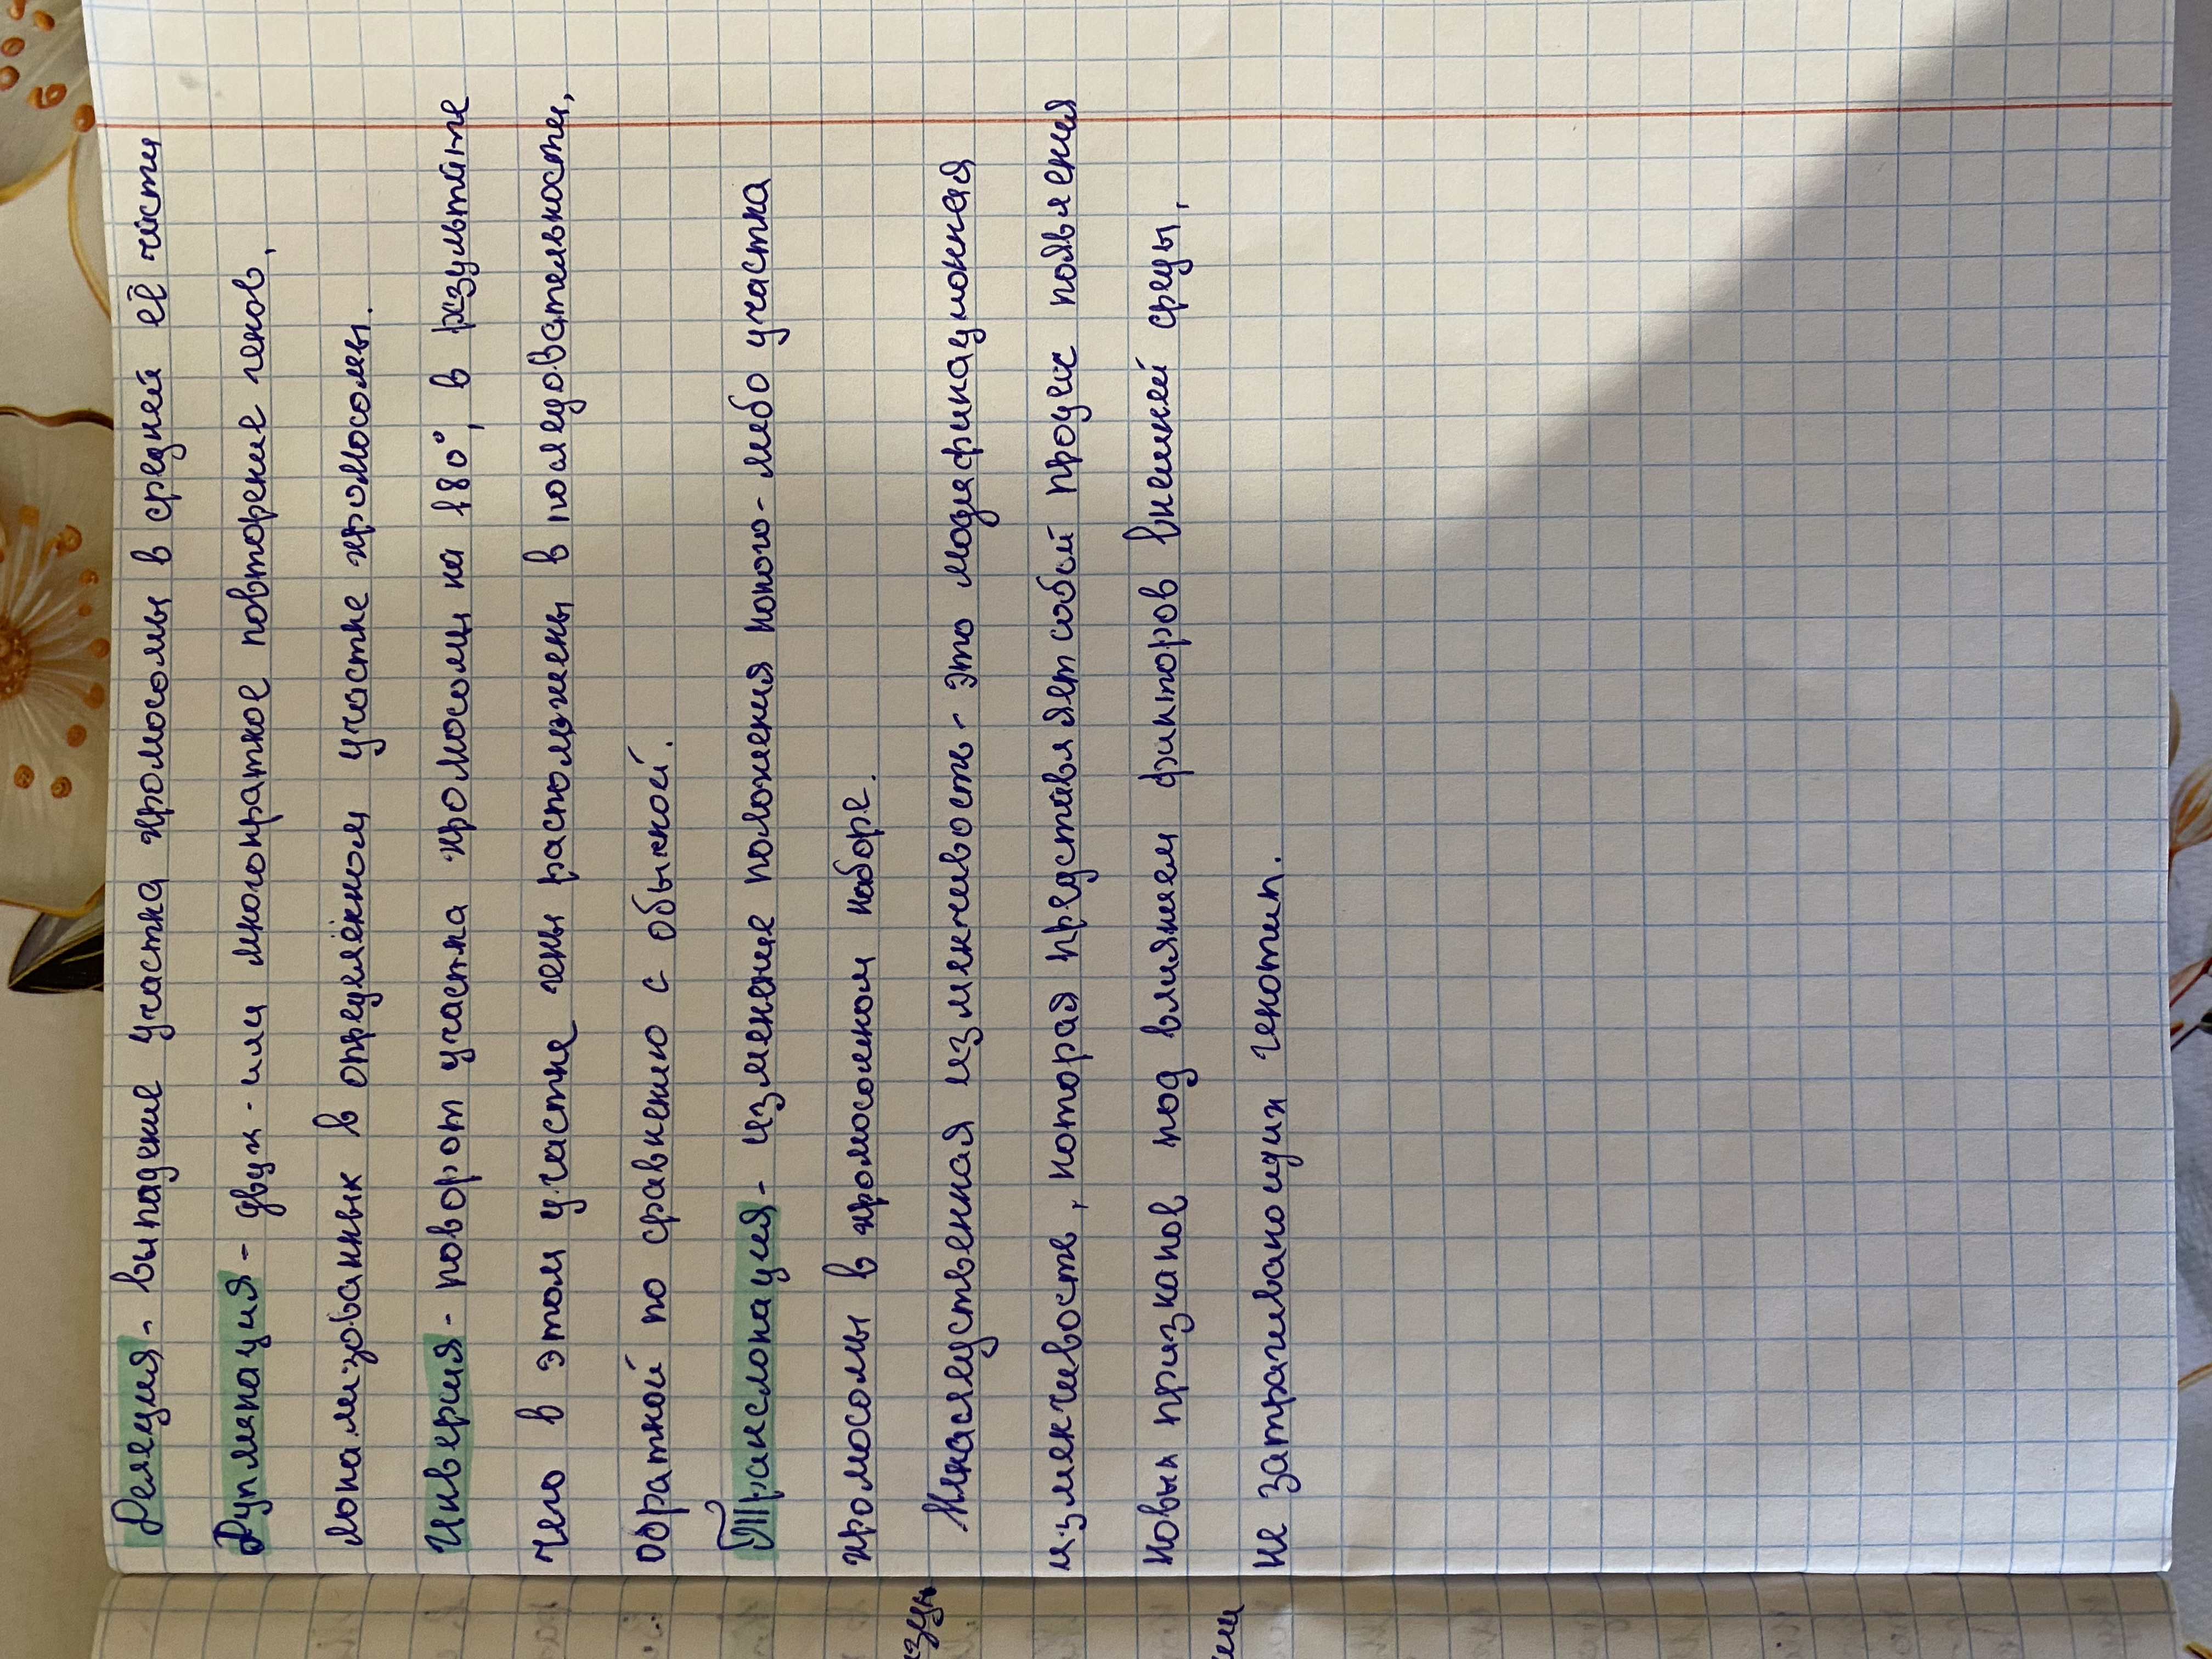 Делеция - выпадение участка хромосомы в средней её части
Дупликация - двух - или многократное повторение генов,
локализованных в определённом участке хромосомы.
Инверсия - поворот участка хромосомы на 180°, в результате
чего в этом участке гены расположены в последовательности,
обратной по сравнению с обычной.
Транслокация - изменение положения какого-либо участка
хромосомы в хромосомном наборе.
Ненаследственная изменчивость - это модификационная
изменчивость, которая представляет собой процесс появления
новых признаков под влиянием факторов внешней среды,
не затрагивающих генотип.